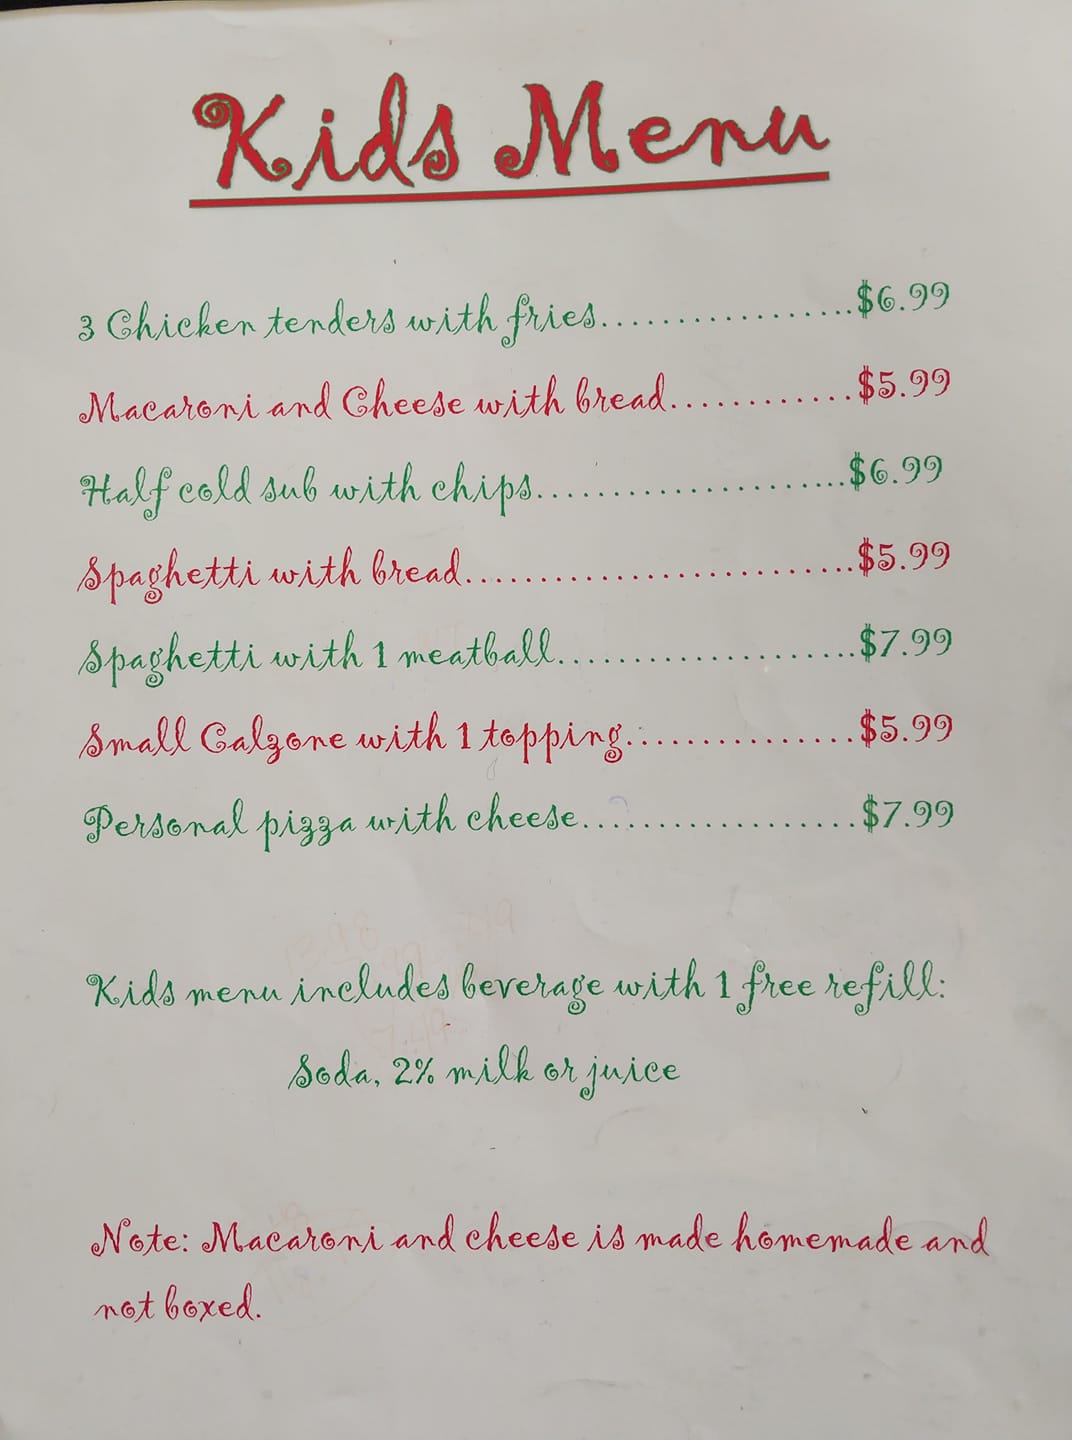 Kids Menu
3 Chicken tenders with fries..................$6.99
Macaroni and Cheese with bread............$5.99
Half cold sub with chips.....................$6.99
Spaghetti with bread..........................$5.99
Spaghetti with 1 meatball....................$7.99
Small Calzone with 1 topping...............$5.99
Personal pizza with cheese..................$7.99
Kids menu includes beverage with 1 free refill:
Soda, 2% milk or juice
Note: Macaroni and cheese is made homemade and
not boxed.